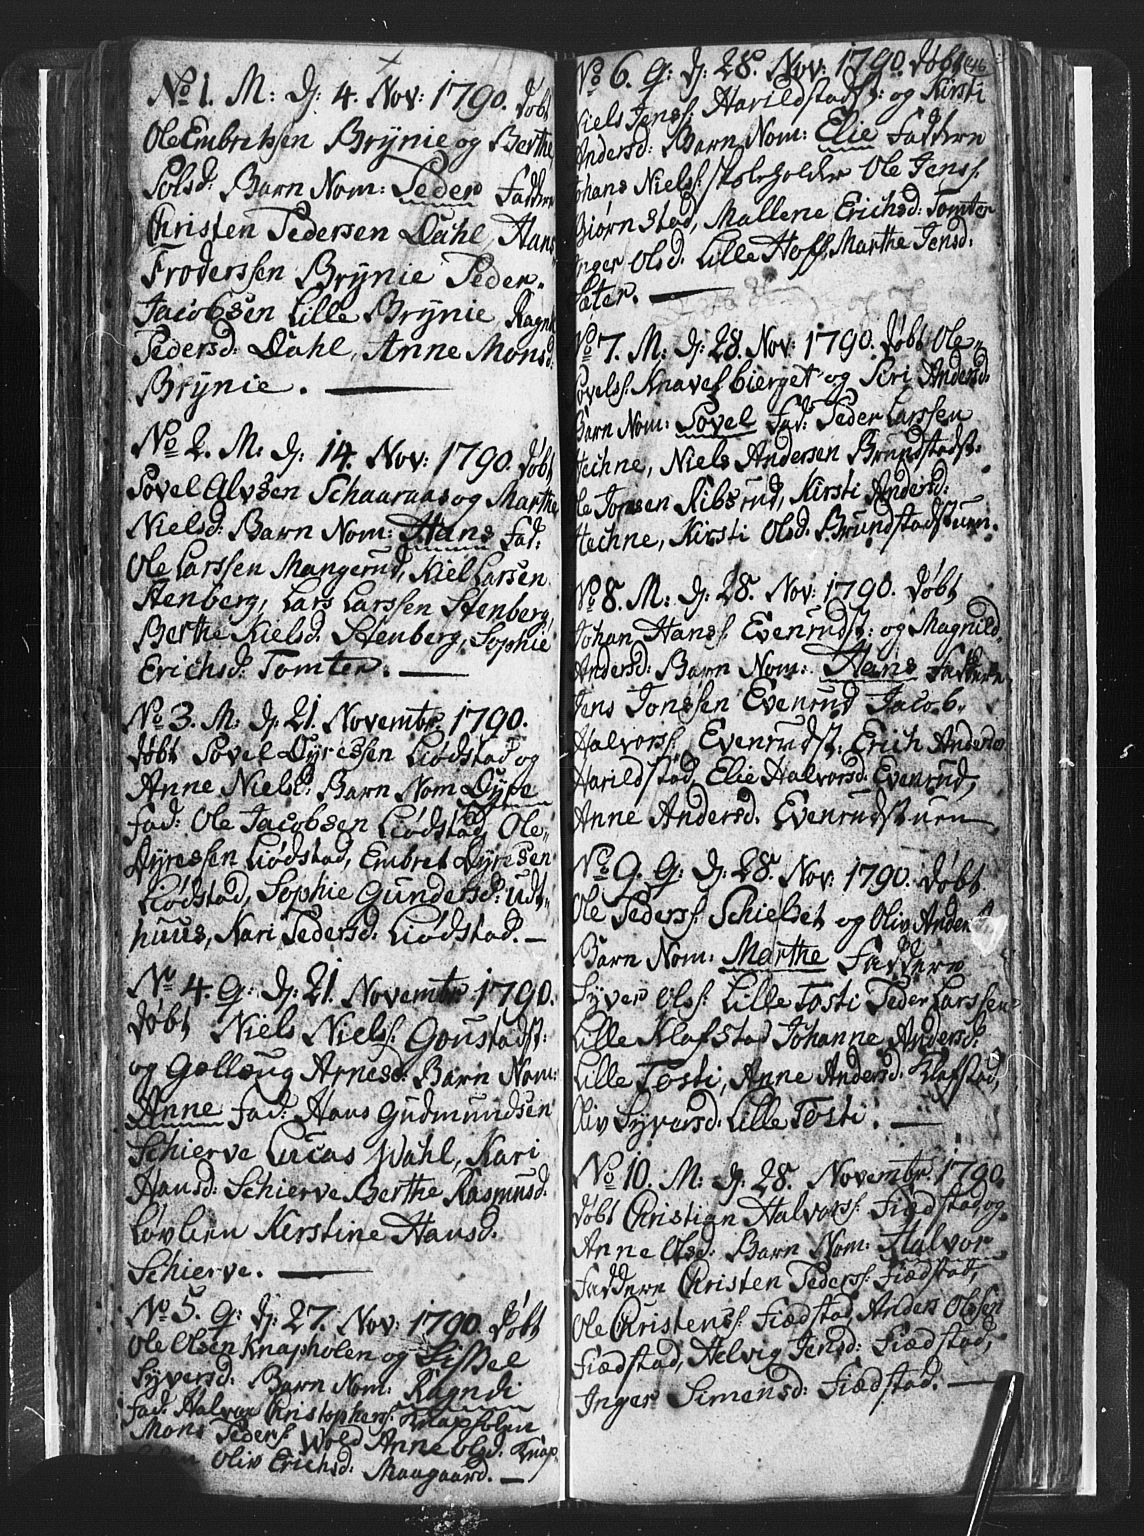 No 1. M: D: 4. Nov: 1790. døbt
Ole Embritsen Brÿnie og Berthe
Polsd: Barn Nom: Peder Faddere
Christen Pedersen Dahl, Hans
Frodersen Brÿnie Peder
Jacobsen Lille Brÿnie, Ragn
Pedersd: Dahl, Anne Monsd:
Brÿnie.
No 2. M. D: 14. Nov: 1790. døbt
Povel Alvsen Schaaraas og Marthe
Nielsd: Barn Nom: Hans Fad:
Ole Larssen Mangerud, Kiel Larsen
Stenberg, Lars Larssen Stenberg,
Berthe Kielsd. Stenberg, Sophie
Erichsd: Tomter.
No 3. M: D: 21. Novembr: 1790.
døbt Povel Dÿressen Liødstad og
Anne Nielsd: Barn Nom Dÿre
Fad: Ole Jacobsen Liødstad, Ole
Dÿressen Liødstad, Embret Dÿresen
Liødstad, Sophie Gundersd: udt-
huus, Kari Pedersd: Liødstad.
No 4. G: D: 21. Novembr: 1790.
døbt Niels Nielss: Goustadst:
og Gollaug Arnesd: Barn Nom:
Anne Fad: Hans Gudmundsen
Schierve Lucas Wahl, Kari
Hansd: Schierve Berthe Rasmusd.
Løvlien Kerstine Hansd.
Schierve.
No 5. G: D: 27. Nov: 1790. døbt
Ole Olsen Knapholen og Sissel
Syversd: Barn Nom: Ragndi
Fad: Halvor Christophers: Knapholen
Mons Peders: Wold Anne Olsd: Knap
Oliv Erichsd: Maagaard.
No 6. G: D: 28. Nov: 1790. døbt 46
Niels Jenss: Harildstadst: og Kirsti
Andersd: Barn Nom: Elie Faddere
Johans Nielss: Skoleholder Ole Jenss:
Biørnstad, Mallene Erichsd: Tomter
Inger Olsd: Lille Hoff, Marthe Jensd:
Sæter.
No 7. M: D: 28. Nov: 1790. døbt Ole
Povelss: Knavesbierget og Siri Andersd:
Barn Nom: Povel Fad: Peder Larssen
Hechne, Niels Andersen Brundstadst:
Ole Jonsen Ribsrud, Kirsti Andersd:
Hechne, Kirsti Olsd: Brundstadstuen.
No 8. M: D: 28. Nov: 1790. døbt
Johan Hanss: Evenrudst: og Magnild
Andersd: Barn Nom: Hans Faddere
Jens Jonssen Evenrud Jacob
Halvorss: Evenrudst: Erich Anders:
Harildstad, Elie Halvorsd: Evenrud,
Anne Andersd. Evenrudstuen
No 9. G: D: 28. Nov: 1790. døbt
Ole Pederss: Schieldet og Oliv Anders
Barn Nom: Marthe Faddere
Syver Olss: Lille Tosti Peder Larssen
Lille Klafstad Johanne Andersd:
Lille Tosti, Anne Andersd: Klafstad,
Oliv Syversd: Lille Tosti.
No 10. M: D: 28. Novembr: 1790.
døbt Christian Halvorss: Fiødstad og
Anne Olsd: Barn Nom: Halvor
Faddere Christen Pederss: Fiædstad,
Ole Christenss: Fiædstad, Anders Olssen
Fiædstad, Helvig Jensd: Fiædstad,
Inger Simensd: Fiædstad.